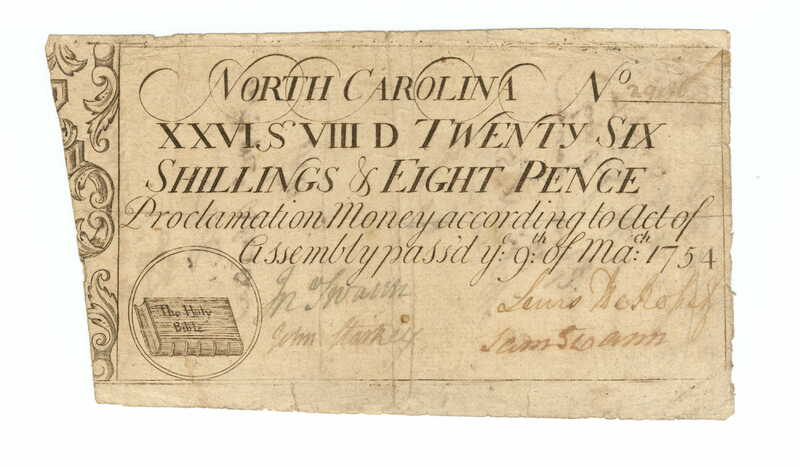 NORTH CAROLINA No
XXVI,S VIII D TWENTY SIX
SHILLINGS & EIGHT PENCE
Proclamation Money according to Act of
Assembly pass'd ye: 9:th of Ma:ch 1754
The Holy
Bible
Jno Swann
Lewis DeRosset
John Starkey
Sam Swann